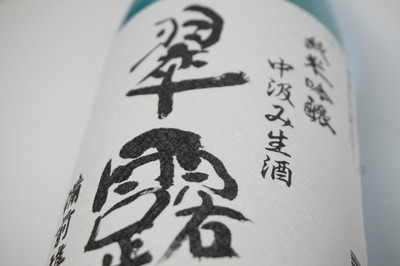 純米吟醸
中汲み生酒
翠露